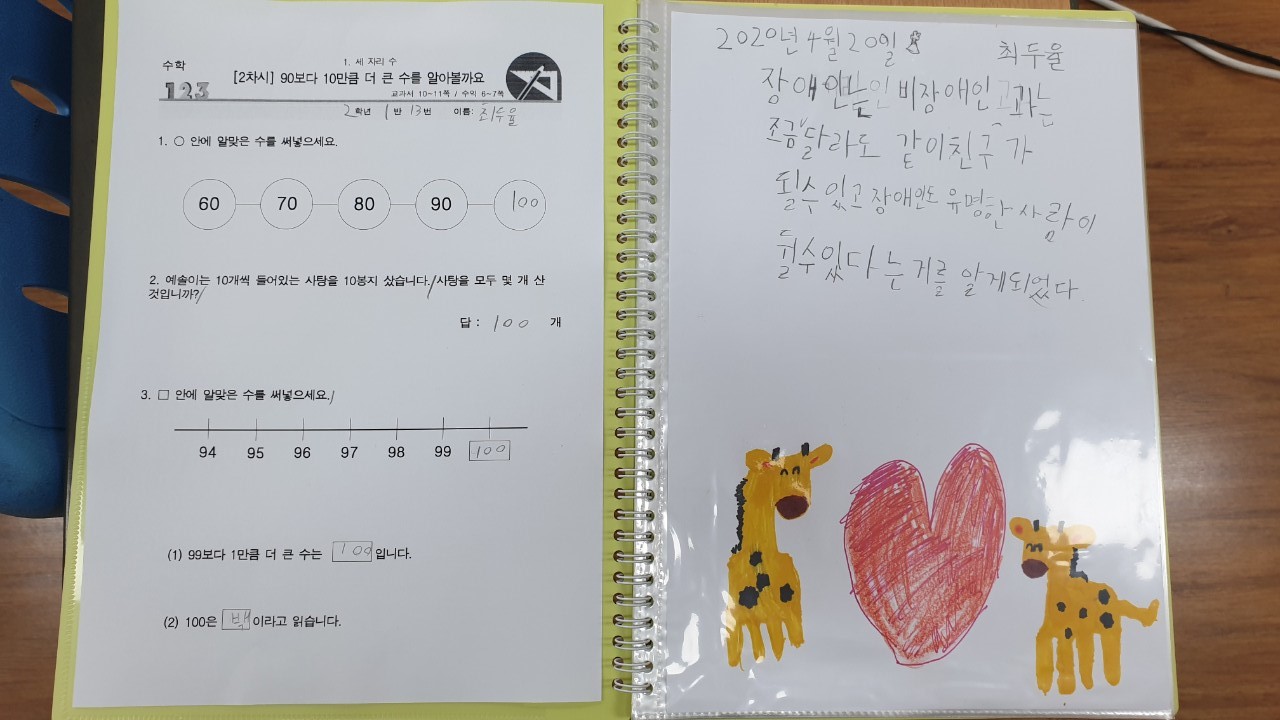 수학
123
1. 세 자리 수
[2차시] 90보다 10만큼 더 큰 수를 알아볼까요
교과서 10~11쪽 / 수익 6~7쪽
2학년 1반 13번 이름: 최두율
1. ○ 안에 알맞은 수를 써넣으세요.
60 70 80 90 100
2. 예솔이는 10개씩 들어있는 사탕을 10봉지 샀습니다./사탕을 모두 몇 개 산
것입니까?/
답 : 100 개
3. □ 안에 알맞은 수를 써넣으세요./
94 95 96 97 98 99 100
(1) 99보다 1만큼 더 큰 수는 100 입니다.
(2) 100은 백 이라고 읽습니다.
2020년 4월 20일 최두율
장애인는 비장애인과는
조금 달라도 같이친구가
될수 있고 장애인도 유명한 사람이
될수있다는거를 알게되었다.